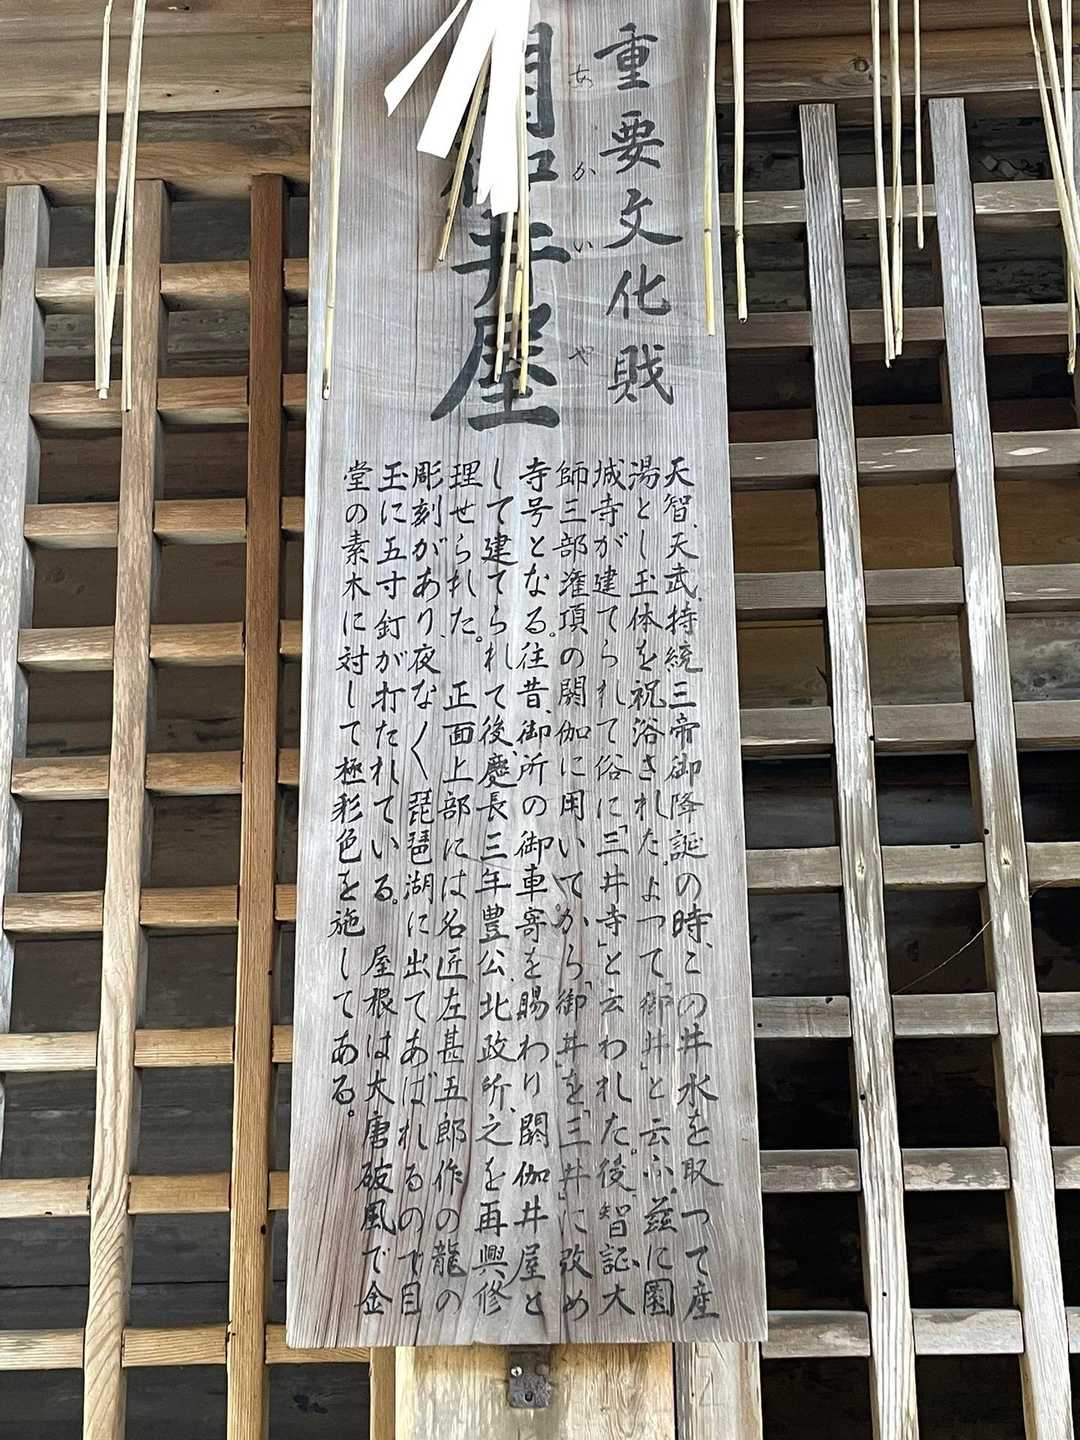 重要文化財
閼伽井屋
あかいや
天智、天武、持統三帝御降誕の時、この井水を取って産
湯とし玉体を祝浴された。よって「御井」と云ふ。茲に園
城寺が建てられて俗に「三井寺」と云われた。後、智証大
師三部潅頂の閼伽に用いてから「御井」を「三井」に改め
寺号となる。往昔、御所の御車寄を賜わり閼伽井屋と
して建てられて後、慶長三年豊公、北政所、之を再興修
理せられた。正面上部には名匠左甚五郎作の龍の
彫刻があり、夜なく琵琶湖に出てあばれるので目
玉に五寸釘が打たれている。屋根は大唐破風で金
堂の素木に対して極彩色を施してある。